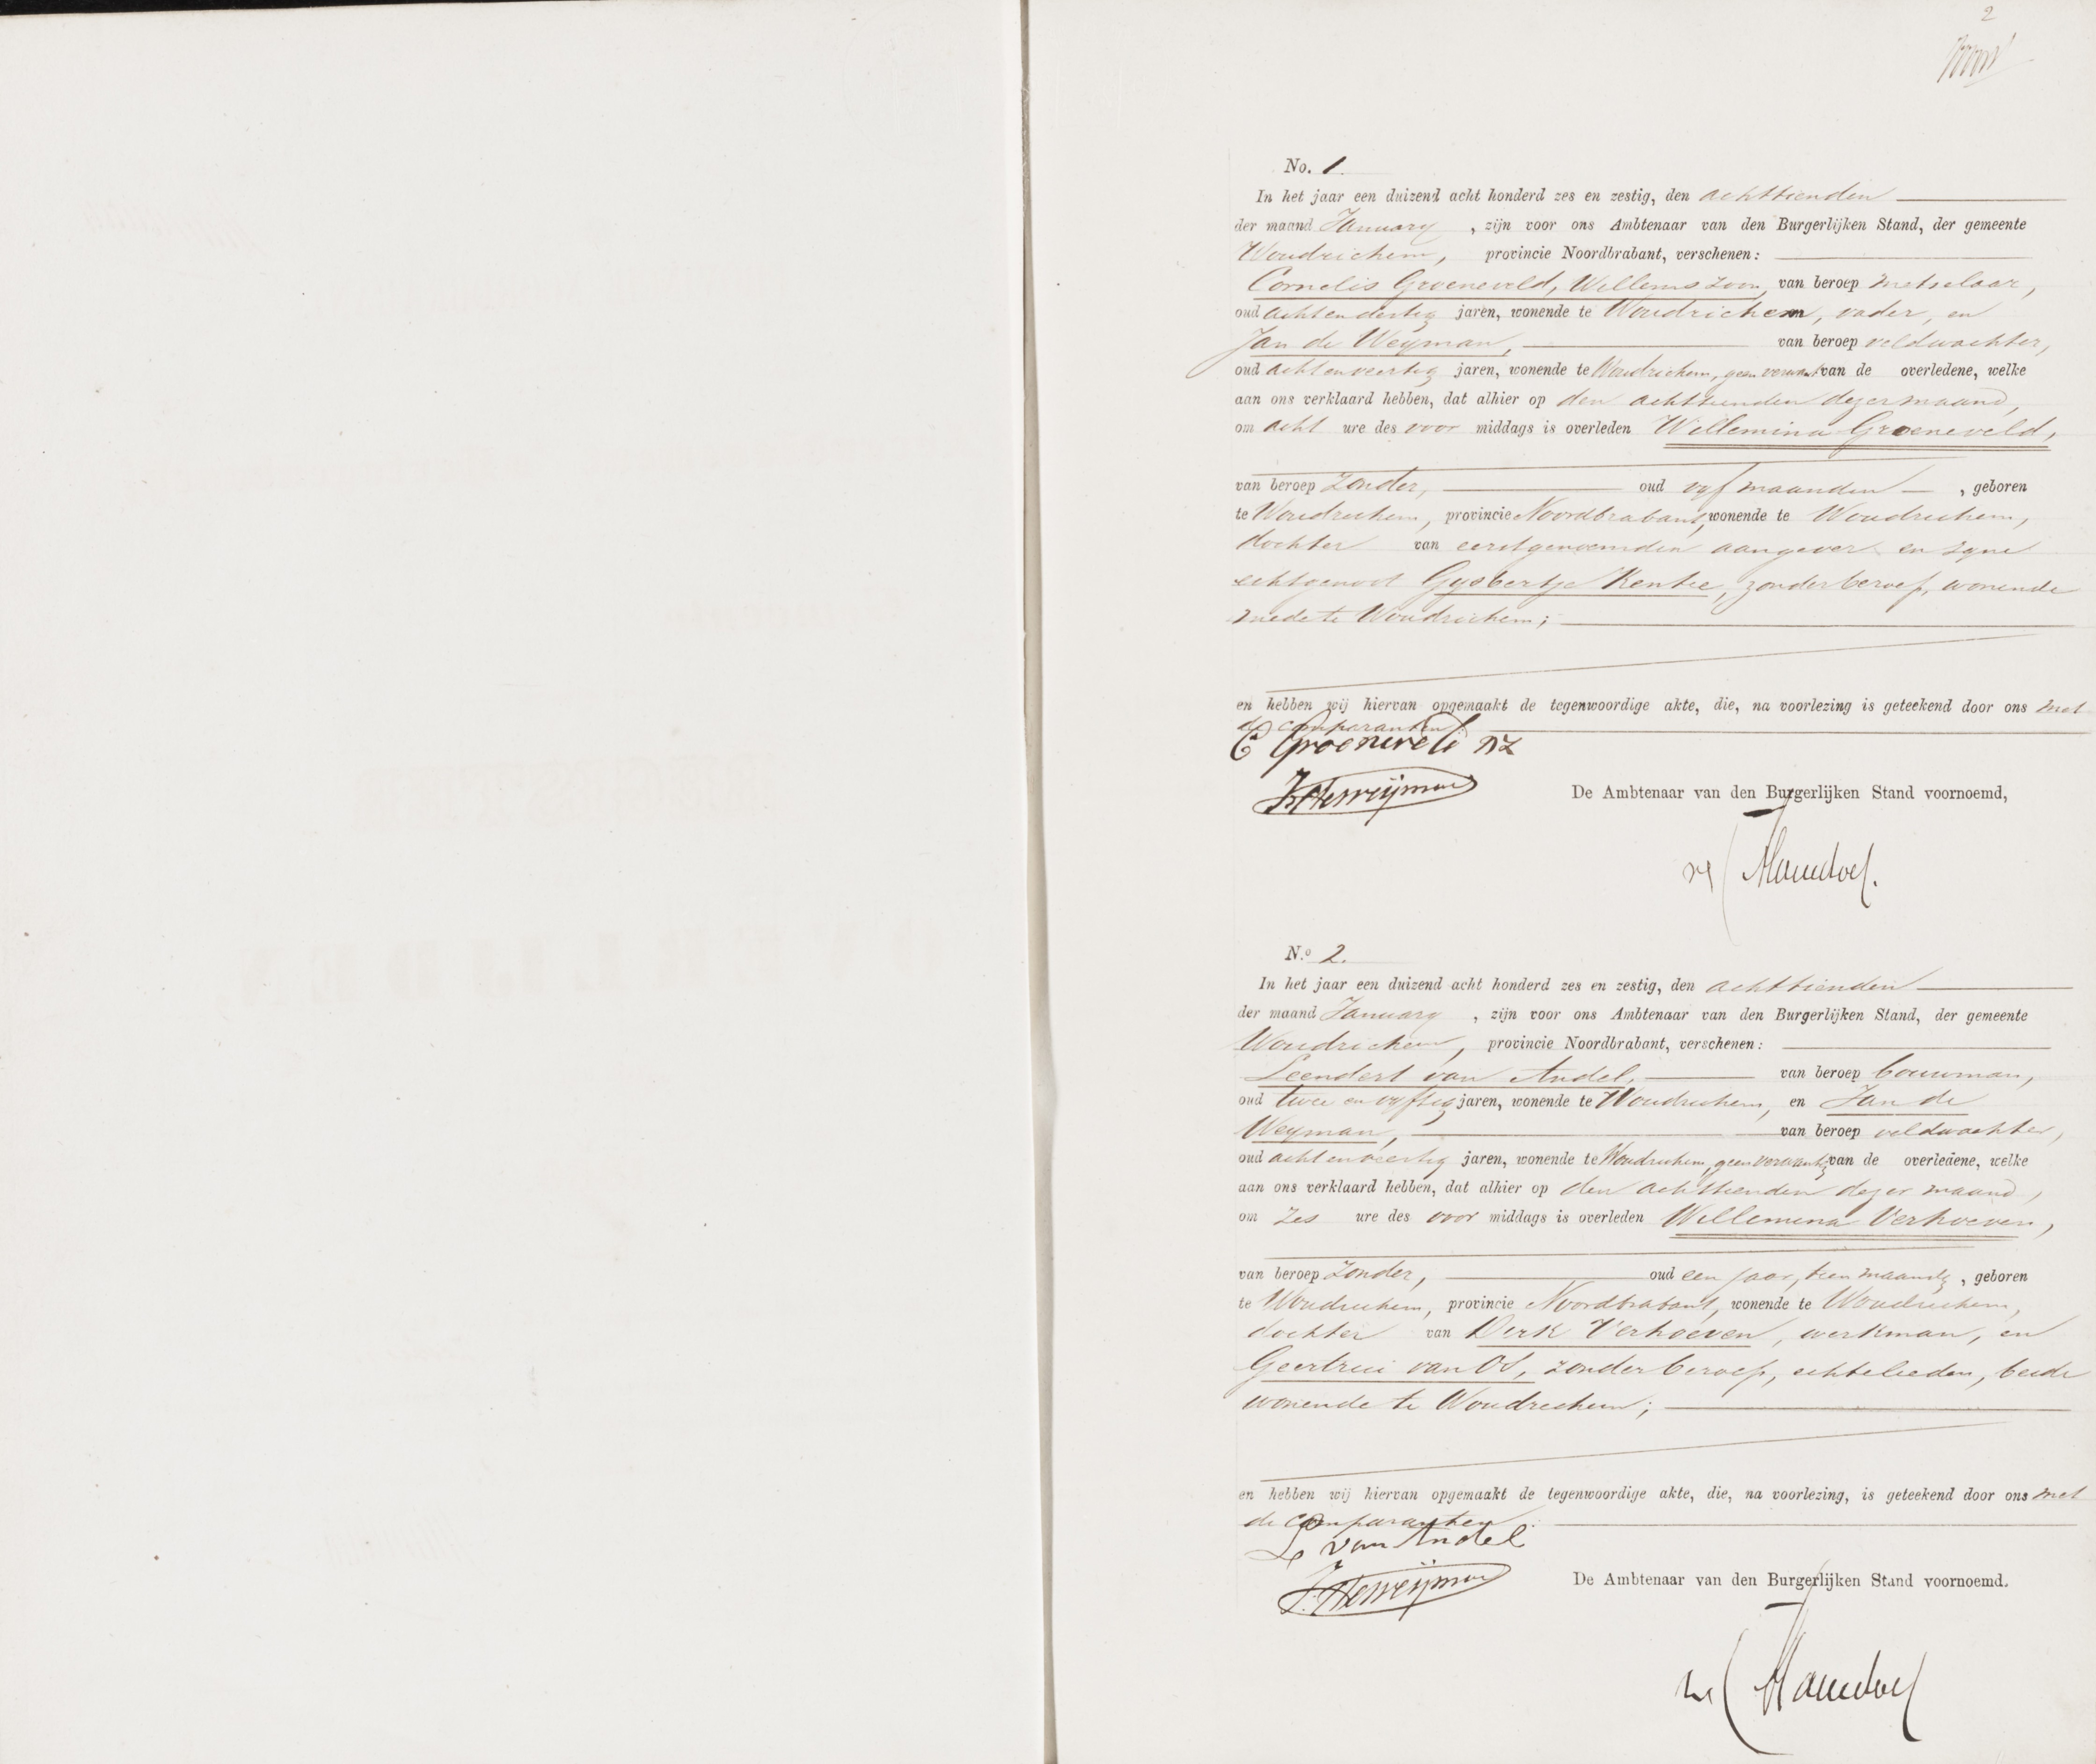 2
No. 1.
In het jaar een duizend acht honderd zes en zestig, den achttienden
der maand January, zijn voor ons Ambtenaar van den Burgerlijken Stand, der gemeente
Woudrichem, provincie Noordbrabant, verschenen:
Cornelis Groeneveld, Willemszoon, van beroep metselaar,
oud achtendertig jaren, wonende te Woudrichem, vader, en
Jan de Weyman, van beroep veldwachter,
oud achtenveertig jaren, wonende te Woudrichem, geen verwant van de overledene, welke
aan ons verklaard hebben, dat alhier op den achttienden dezer maand,
om acht ure des voor middags is overleden Willemina Groeneveld,
van beroep zonder, oud vyf maanden, geboren
te Woudrichem, provincie Noordbrabant, wonende te Woudrichem,
dochter van eerstgenoemden aangever en zyne
echtgenoot Gysbertje Kentie, zonder beroep, wonende
mede te Woudrichem;
en hebben wij hiervan opgemaakt de tegenwoordige akte, die, na voorlezing is geteekend door ons met
de comparanten.
C Groeneveld Wz
De Ambtenaar van den Burgerlijken Stand voornoemd,
N.o 2.
In het jaar een duizend acht honderd zes en zestig, den achttienden
der maand January, zijn voor ons Ambtenaar van den Burgerlijken Stand, der gemeente
Woudrichem, provincie Noordbrabant, verschenen:
Leendert van Andel, van beroep bouwman,
oud twee en vyftig jaren, wonende te Woudrichem, en Jan de
Weyman, van beroep veldwachter,
oud achtenveertig jaren, wonende te Woudrichem, geen verwanten van de overledene, welke
aan ons verklaard hebben, dat alhier op den achttienden dezer maand,
om zes ure des voor middags is overleden Willemina Verhoeven,
van beroep zonder, oud een jaar, tien maanden, geboren
te Woudrichem, provincie Noordbrabant, wonende te Woudrichem,
dochter van Dirk Verhoeven, werkman, en
Geertrui van Os, zonder beroep, echtelieden, beide
wonende te Woudrichem;
en hebben wij hiervan opgemaakt de tegenwoordige akte, die, na voorlezing, is geteekend door ons met
de comparanten.
L van Andel
De Ambtenaar van den Burgerlijken Stand voornoemd.